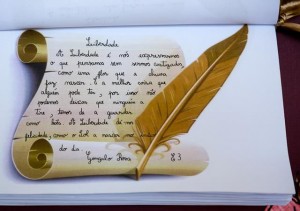 Liberdade
A Liberdade é nós expressarmos
o que pensamos sem sermos castigados,
como uma flor que a chuva
faz nascer, é a melhor coisa que
alguém pode ter, por isso não
podemos deixar que ninguém a
tire, temos de a guardar
como leões. A Liberdade dá-nos
felicidade, como o Sol a nascer no início
do dia.
Gonçalo Rosa 8.3